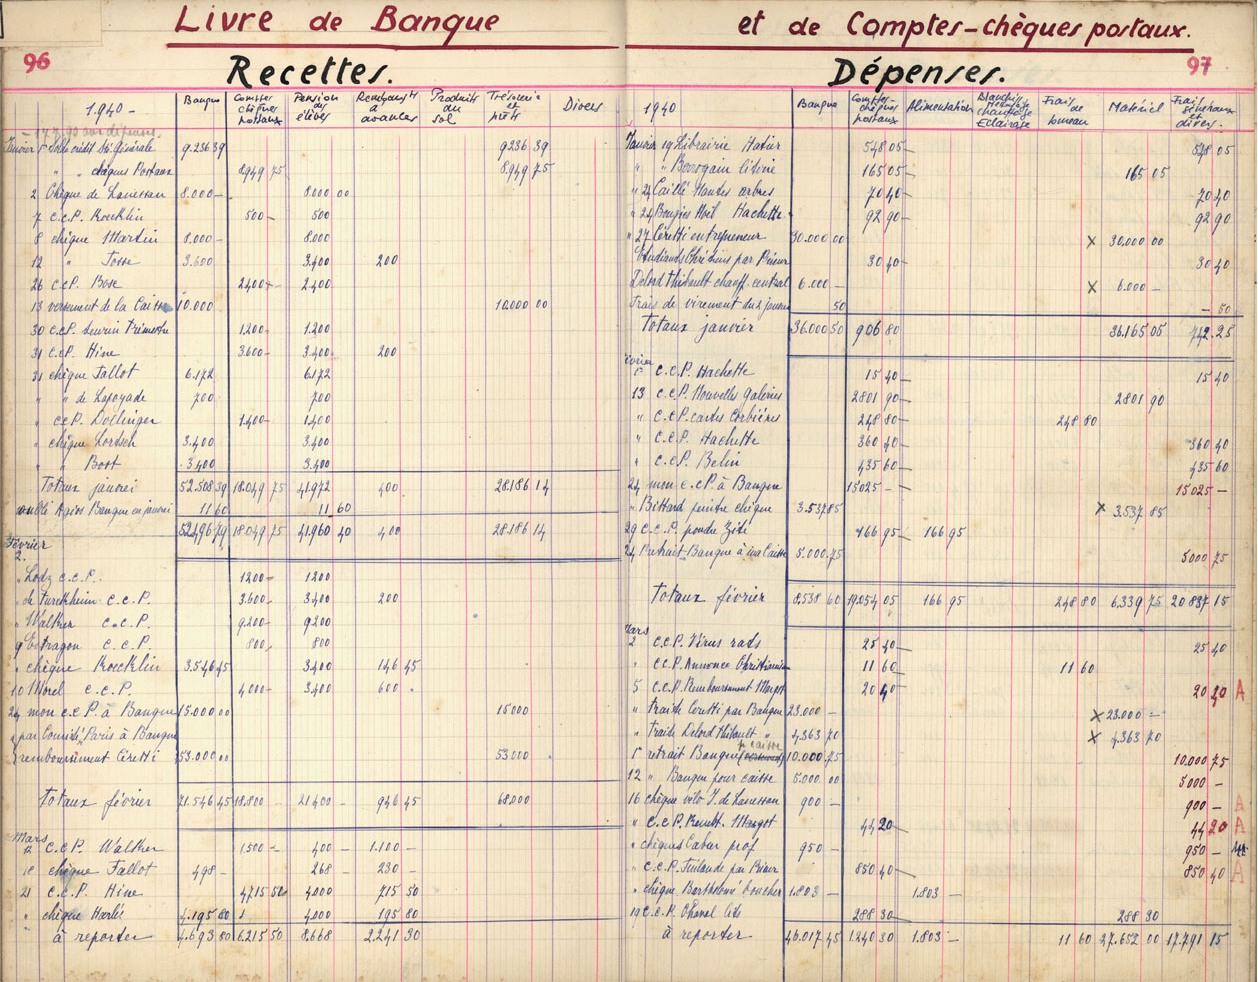 Livre de Banque et de Comptes-chèques postaux.
96
Recettes.
1940 - Banque Comptes chèques postaux Pension des élèves Rembours^ts à avances Produits du sol Trésorerie et prêts Divers
Janvier 1 Solde crédit Sté Générale 9236 39 9236 39
" " chèques Postaux 8949 75 8.949 75
2 Chèque de Lanessan 8.000 - 8.000 00
7 C.C.P. Koechlin 500 - 500
8 chèque Martin 8.000 - 8.000
12 " Tosse 3.600 3.400 200
26 C.C.P. Bose 2400 - 2.400
13 versement de la Caisse 10.000 10.000 00
30 C.C.P. Seurin Trimestre 1200 - 1.200
31 C.C.P. Hine 3.600 - 3.400 200
31 chèque Fallot 6.172 6.172
" " de Lafoyade 700 700
" C.C.P. Dollinger 1.400 - 1.400
" chèque Lortsch 3.400 3.400
" " Bost 3.400 3.400
Totaux janvier 52.508 39 18.049 75 41972 400 28.186 14
Agios Banque en janvier 11 60 11 60
52496 79 18.049 75 41960 40 400 28.186 14
Février
2.
" Lodz C.C.P. 1200 - 1200
" de Turckheim C.C.P. 3.600 - 3.400 200
" Walther C.C.P. 9200 - 9200
9 Estragon C.C.P. 800 - 800
" chèque Koechlin 3.546 45 3.400 146 45
10 Morel C.C.P. 4.000 - 3.400 600
24 mon C.C.P. à Banque 15.000 00 15.000
par Comité Paris à Banque
remboursement Ceretti 53.000 00 53.000
Totaux février 71.546 45 18.800 - 21400 - 946 45 68.000
Mars
12 C.C.P. Walther 1500 - 400 - 1.100 -
18 chèque Fallot 498 - 268 - 230 -
21 C.C.P. Hine 4715 50 4.000 715 50
" chèque Harlé 4.195 80 4.000 195 80
à reporter 4.693 80 6.215 50 8.668 2.241 30
97
Dépenses.
1940 Banque Comptes-chèques postaux Alimentation Blanchis^ge Ménage chauffage Eclairage Frais de bureau Matériel Frais généraux et divers.
Janvier 19 Librairie Hatier 548 05 548 05
" " Bourgain literie 165 05 165 05
" 24 Caillé Hautes arbres 70 40 70 40
" 24 Bougies Noël Hachette 92 90 92 90
" 27 Ceretti entrepreneur 30.000 00 x 30.000 00
Etudiants Chrétiens par Prieur 30 40 30 40
Delord Thibault chauff. central 6.000 - x 6.000 -
Frais de virement du 2 janvier 50 - 50
Totaux janvier 36.000 50 906 80 36.165 05 742.25
Février
1^r C.C.P. Hachette 15 40 15 40
13 C.C.P. Nouvelles Galeries 2801 90 2801 90
" C.C.P. cartes Corbières 248 80 248 80
" C.C.P. Hachette 360 40 360 40
" C.C.P. Belin 435 60 435 60
24 mon C.C.P. à Banque 15025 - 15025 -
" Bittard peintre chèque 3.537 85 x 3.537 85
29 C.C.P. poudre Zite 166 95 166 95
24 Retrait Banque à ma Caisse 5.000.75 5000 75
Totaux février 8.538 60 19.054 05 166 95 248 80 6.339 75 20 837 15
Mars
2 C.C.P. Virus rads 25 40 25 40
" C.C.P. Annonce Christianisme 11 60 11 60
5 C.C.P. Remboursement Margot 20 40 20 40 A
" traite Ceretti par Banque 23.000 - x 23.000 -
" Traite Delord Thibault " 4.363 70 x 4.363 70
1^r retrait Banque p. caisse 10.000 75 10.000 75
12 " Banque pour caisse 5.000. 00 5000 -
16 chèque vélo J. de Lanessan 900 - 900 - A
" C.C.P. Remb^t. Margot 44 20 44 20 A
" chèques Caber prof 950 - 950 -
" C.C.P. Finlande par Prieur 850 40 850 40 A
" chèque Barthelouï boucher 1.803 - 1.803 -
19 C.C.P. Chanel lits 288 30 288 30
à reporter 46.017 45 1240 30 1.803 - 11 60 27.652 00 17.791 15